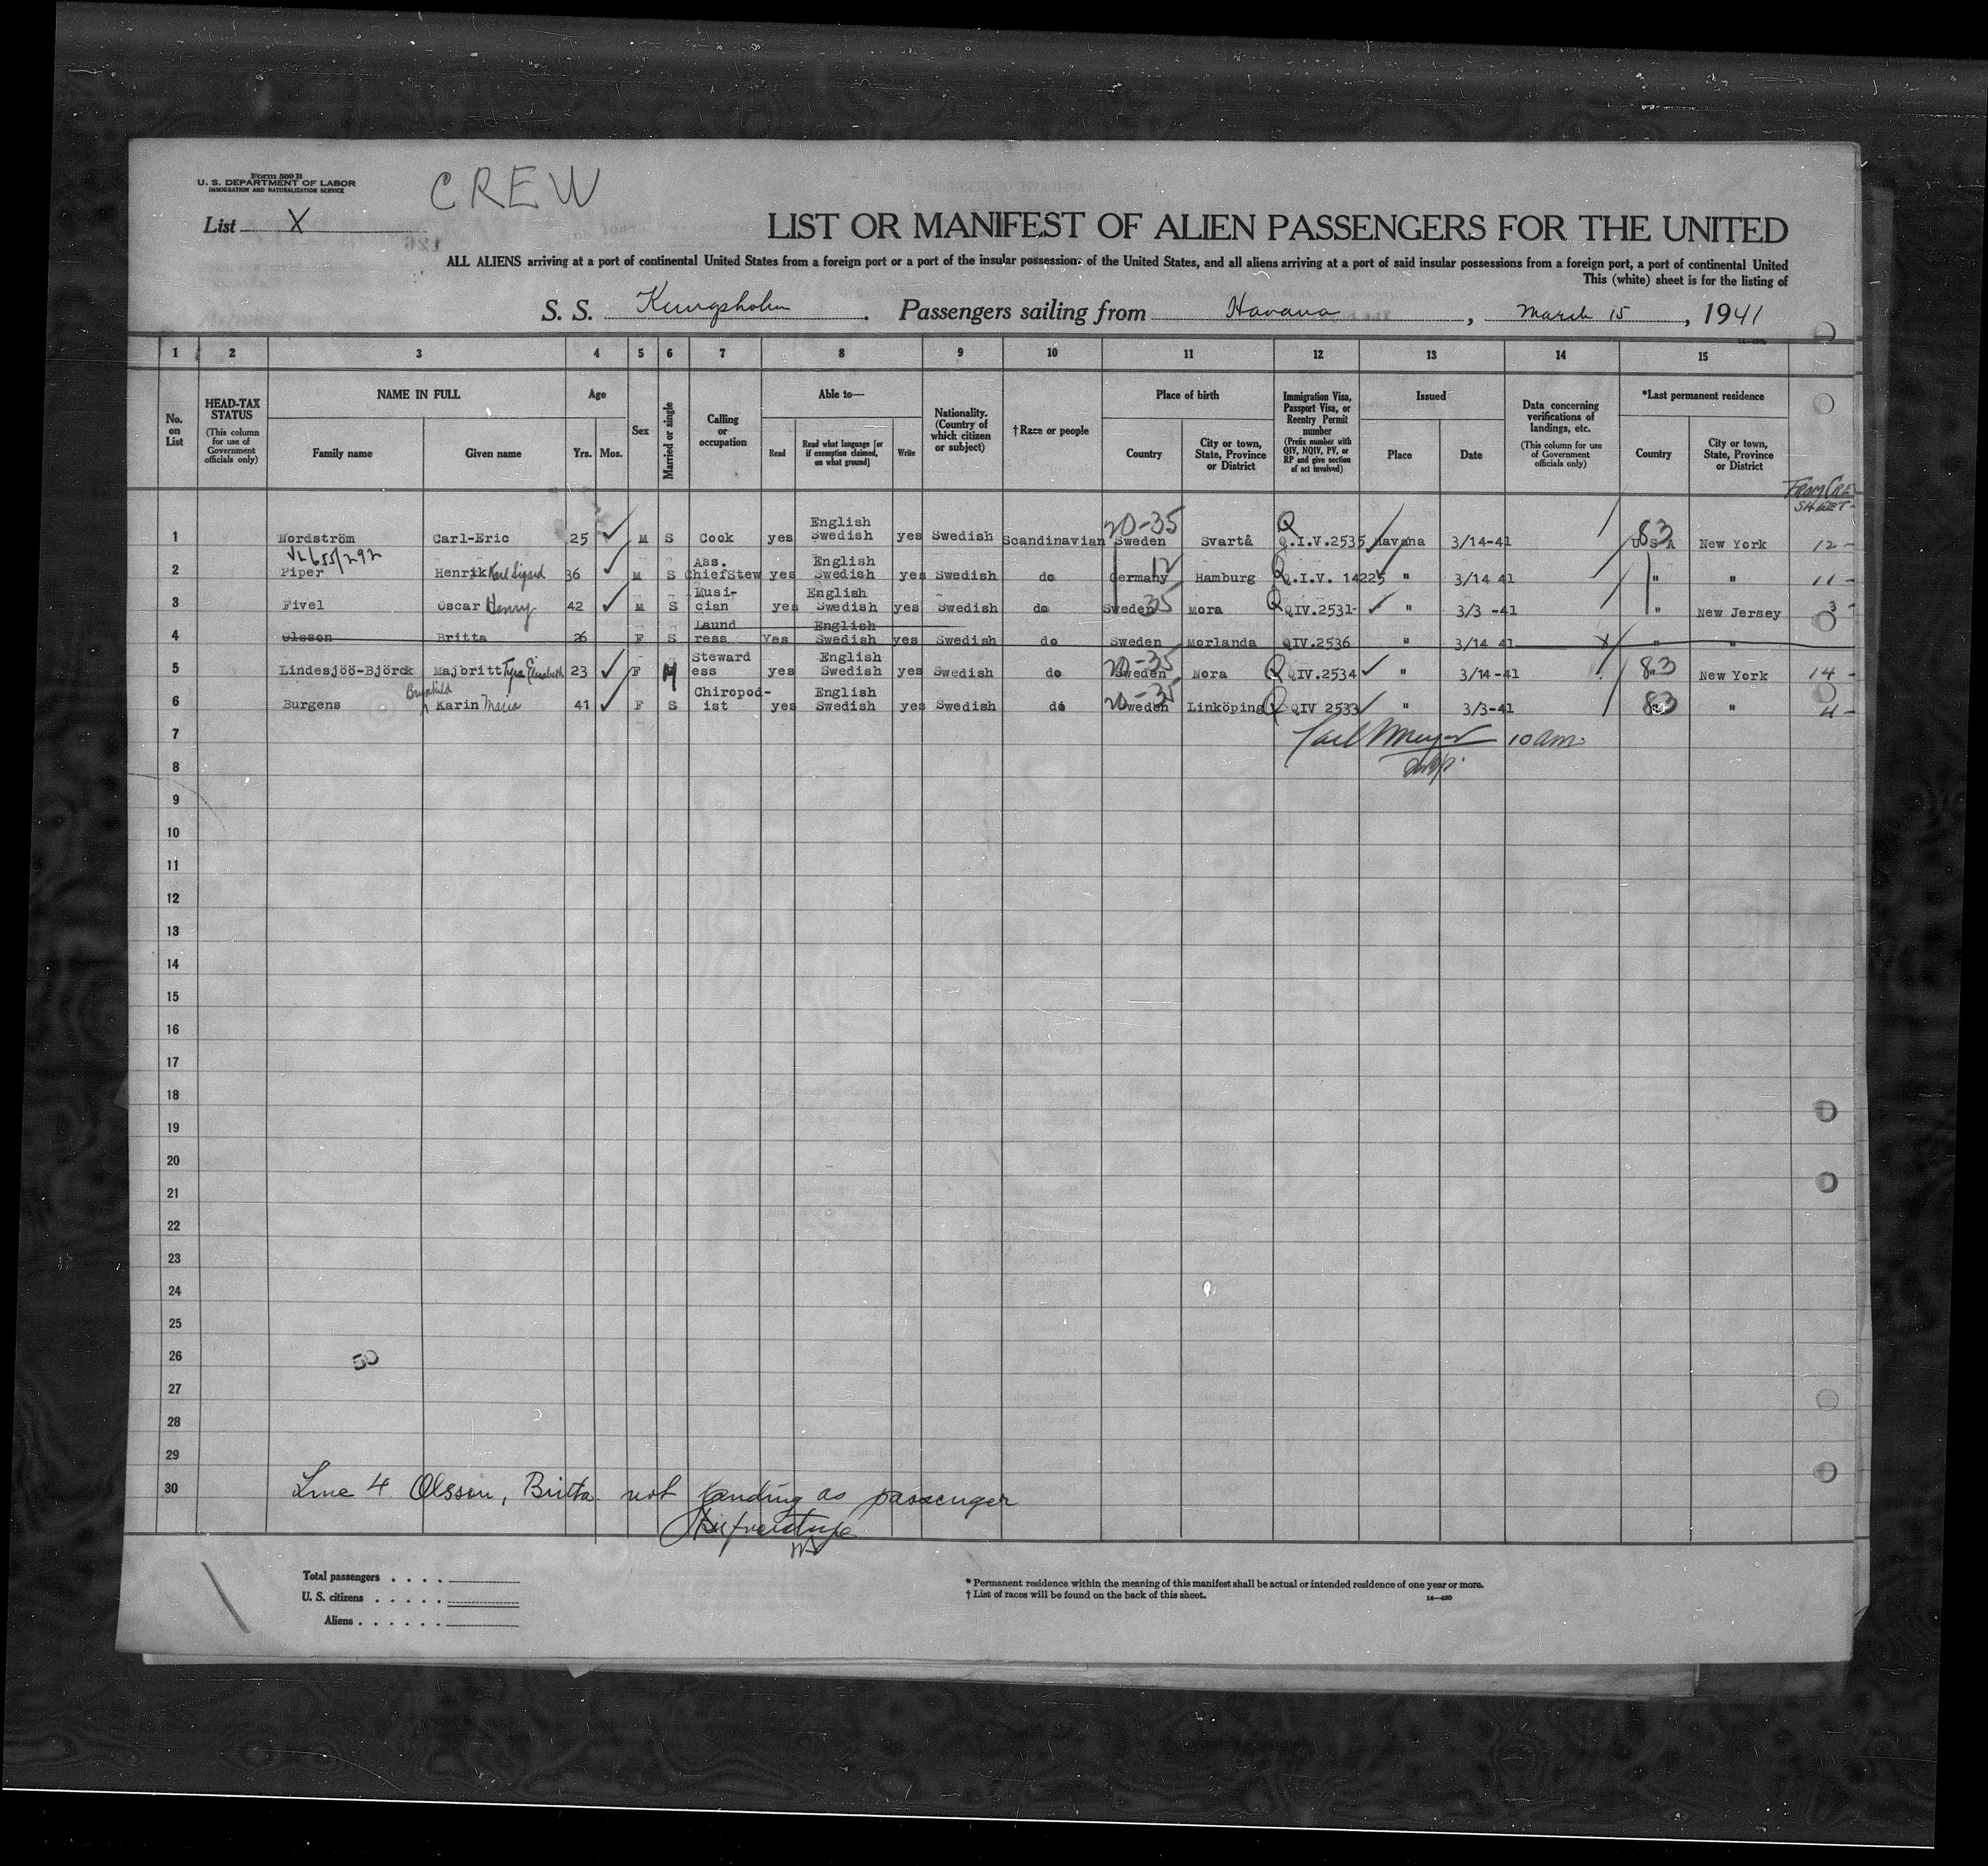 Form 500 B
U. S. DEPARTMENT OF LABOR
IMMIGRATION AND NATURALIZATION SERVICE
CREW
List X
126
LIST OR MANIFEST OF ALIEN PASSENGERS FOR THE UNITED
ALL ALIENS arriving at a port of continental United States from a foreign port or a port of the insular possessions of the United States, and all aliens arriving at a port of said insular possessions from a foreign port, a port of continental United
This (white) sheet is for the listing of
S. S. Kungsholm. Passengers sailing from Havana, March 15, 1941
1 2 3 4 5 6 7 8 9 10 11 12 13 14 15
No. on List
HEAD-TAX STATUS (This column for use of Government officials only)
NAME IN FULL
Family name
Given name
Age
Yrs. Mos.
Sex
Married or single
Calling or occupation
Able to—
Read
Read what language [or if exemption claimed, on what ground]
Write
Nationality. (Country of which citizen or subject)
†Race or people
Place of birth
Country
City or town, State, Province or District
Immigration Visa, Passport Visa, or Reentry Permit number (Prefix number with QIV, NQIV, PV, or RP and give section of act involved)
Issued
Place
Date
Data concerning verifications of landings, etc. (This column for use of Government officials only)
*Last permanent residence
Country
City or town, State, Province or District
FROM CRE
SHEET-
1 Nordström Carl-Eric 25 M S Cook yes English Swedish yes Swedish Scandinavian 20-35 Sweden Svartå Q Q.I.V.2535 Havana 3/14-41 83 U S A New York 12-
VL 655/292
2 Piper Henrik Karl Sigard 36 M S Ass. ChiefStew yes English Swedish yes Swedish do 12 Germany Hamburg Q Q.I.V. 14225 " 3/14 41 " " 11-
3 Fivel Oscar Henry 42 M S Musi- cian yes English Swedish yes Swedish do 35 Sweden Mora Q QIV.2531- " 3/3 -41 " New Jersey 3-
4 Olsson Britta 26 F S Laund ress Yes English Swedish yes Swedish do Sweden Morlanda QIV.2536 " 3/14 41 X " "
5 Lindesjöö-Björck Majbritt Tyra Elisabeth 23 F M Steward ess yes English Swedish yes Swedish do 20-35 Sweden Nora Q QIV.2534 " 3/14-41 83 New York 14-
6 Burgens Brynhild Karin Maria 41 F S Chiropod- ist yes English Swedish yes Swedish do 20-35 Sweden Linköping Q QIV 2533 " 3/3-41 83 " 4-
7 10 am.
8
9
10
11
12
13
14
15
16
17
18
19
20
21
22
23
24
25
26 50
27
28
29
30 Line 4 Olsson, Britta not landing as passenger
Total passengers . . . .
U. S. citizens . . . . .
Aliens . . . . . .
* Permanent residence within the meaning of this manifest shall be actual or intended residence of one year or more.
† List of races will be found on the back of this sheet.
14—430